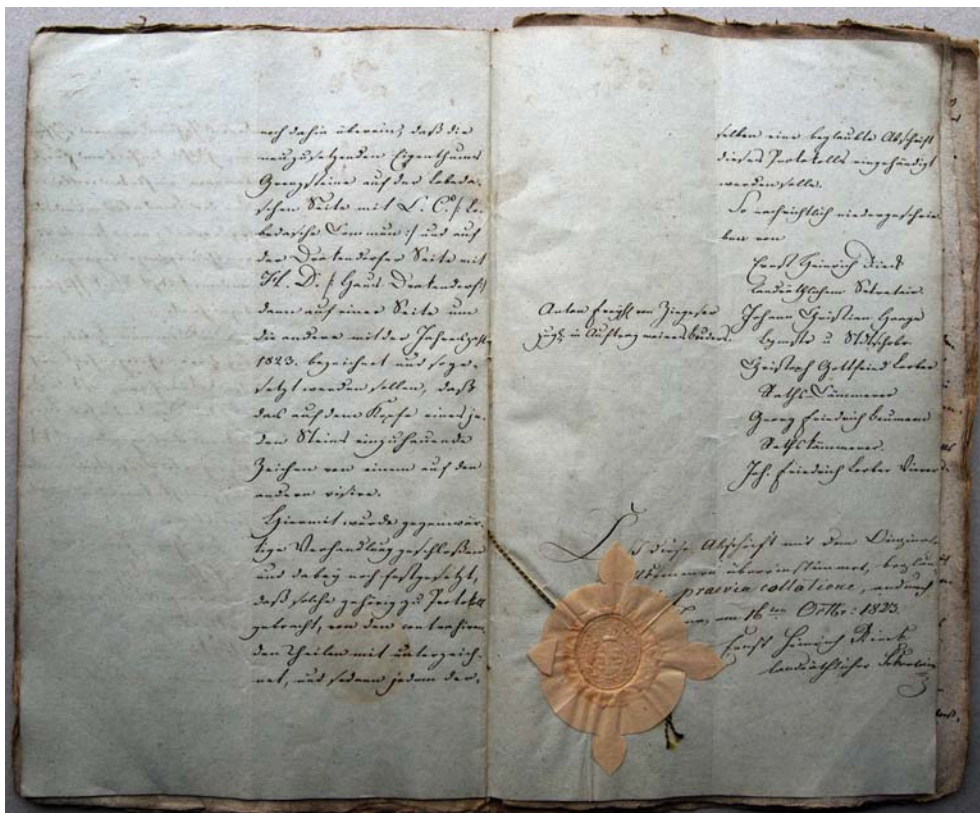 noch dahin überein, daß die
neuzusetzenden Eigenthums
Grenzsteine auf der Lobeda-
schen Seite mit L. C. /: Lo-
bedasche Commun :/ und auf
der Drakendorfer Seite mit
H. D. /: Haus Drakendorf :/
dann auf einer Seite um
die andere mit der Jahreszahl
1823. bezeichnet und so ge-
setzt werden sollen, daß
das auf dem Kopfe eines je-
den Steins einzuhauende
Zeichen von einem auf den
andern visire.
Hiermit wurde gegenwär-
tige Verhandlung geschloßen
und dabey noch festgesetzt,
daß solche gehörig zu Protokoll
gebracht, von den contrahiren-
den Theilen mit unterzeich-
net, und sodann jedem der-
selben eine beglaubte Abschrift
dieses Protokolls eingehändigt
werden solle.
So nachrichtlich niedergeschrie-
ben von
Ernst Heinrich Rieck
landräthlichem Sekretair.
Anton Freyh. von Ziegesar
zugl. in Auftrag meines Bruders.
Johann Christian Haage
u Stdtschrbr.
Christoph Gottfried Lorber
Raths Cämmerer
Georg Friedrich Baumann
Rathskämmerer.
Joh. Friedrich Lorber
diese Abschrift mit dem Originale
übereinstimmet,
praevia collatione,
am 16ten Octbr: 1823.
Ernst Heinrich Rieck
landräthlicher Sekretair